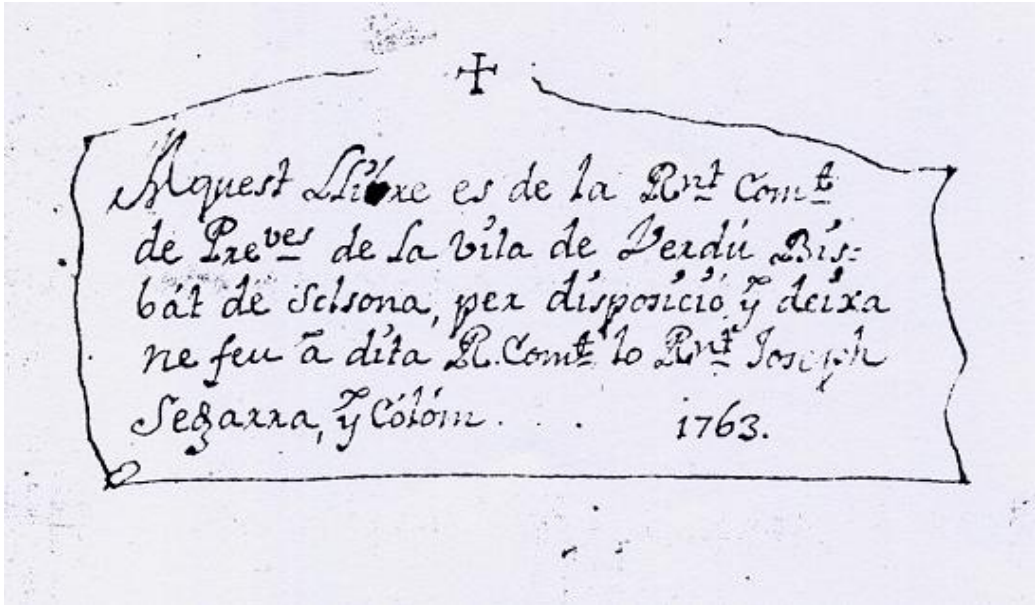 Aquest Llibre es de la Rnt Comt
de Preves de la vila de Verdú Bis:
bát de Solsona, per disposició ÿ deixa
ne feu ā dita R. Comt lo Rnt Joseph
Segarra, ÿ Cólóm . . . 1763.